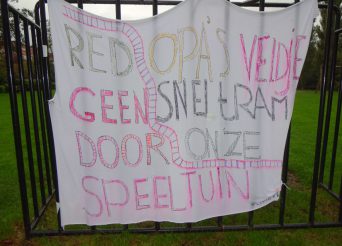 RED OPA'S VELDJE
GEEN SNELTRAM
DOOR ONZE
SPEELTUIN